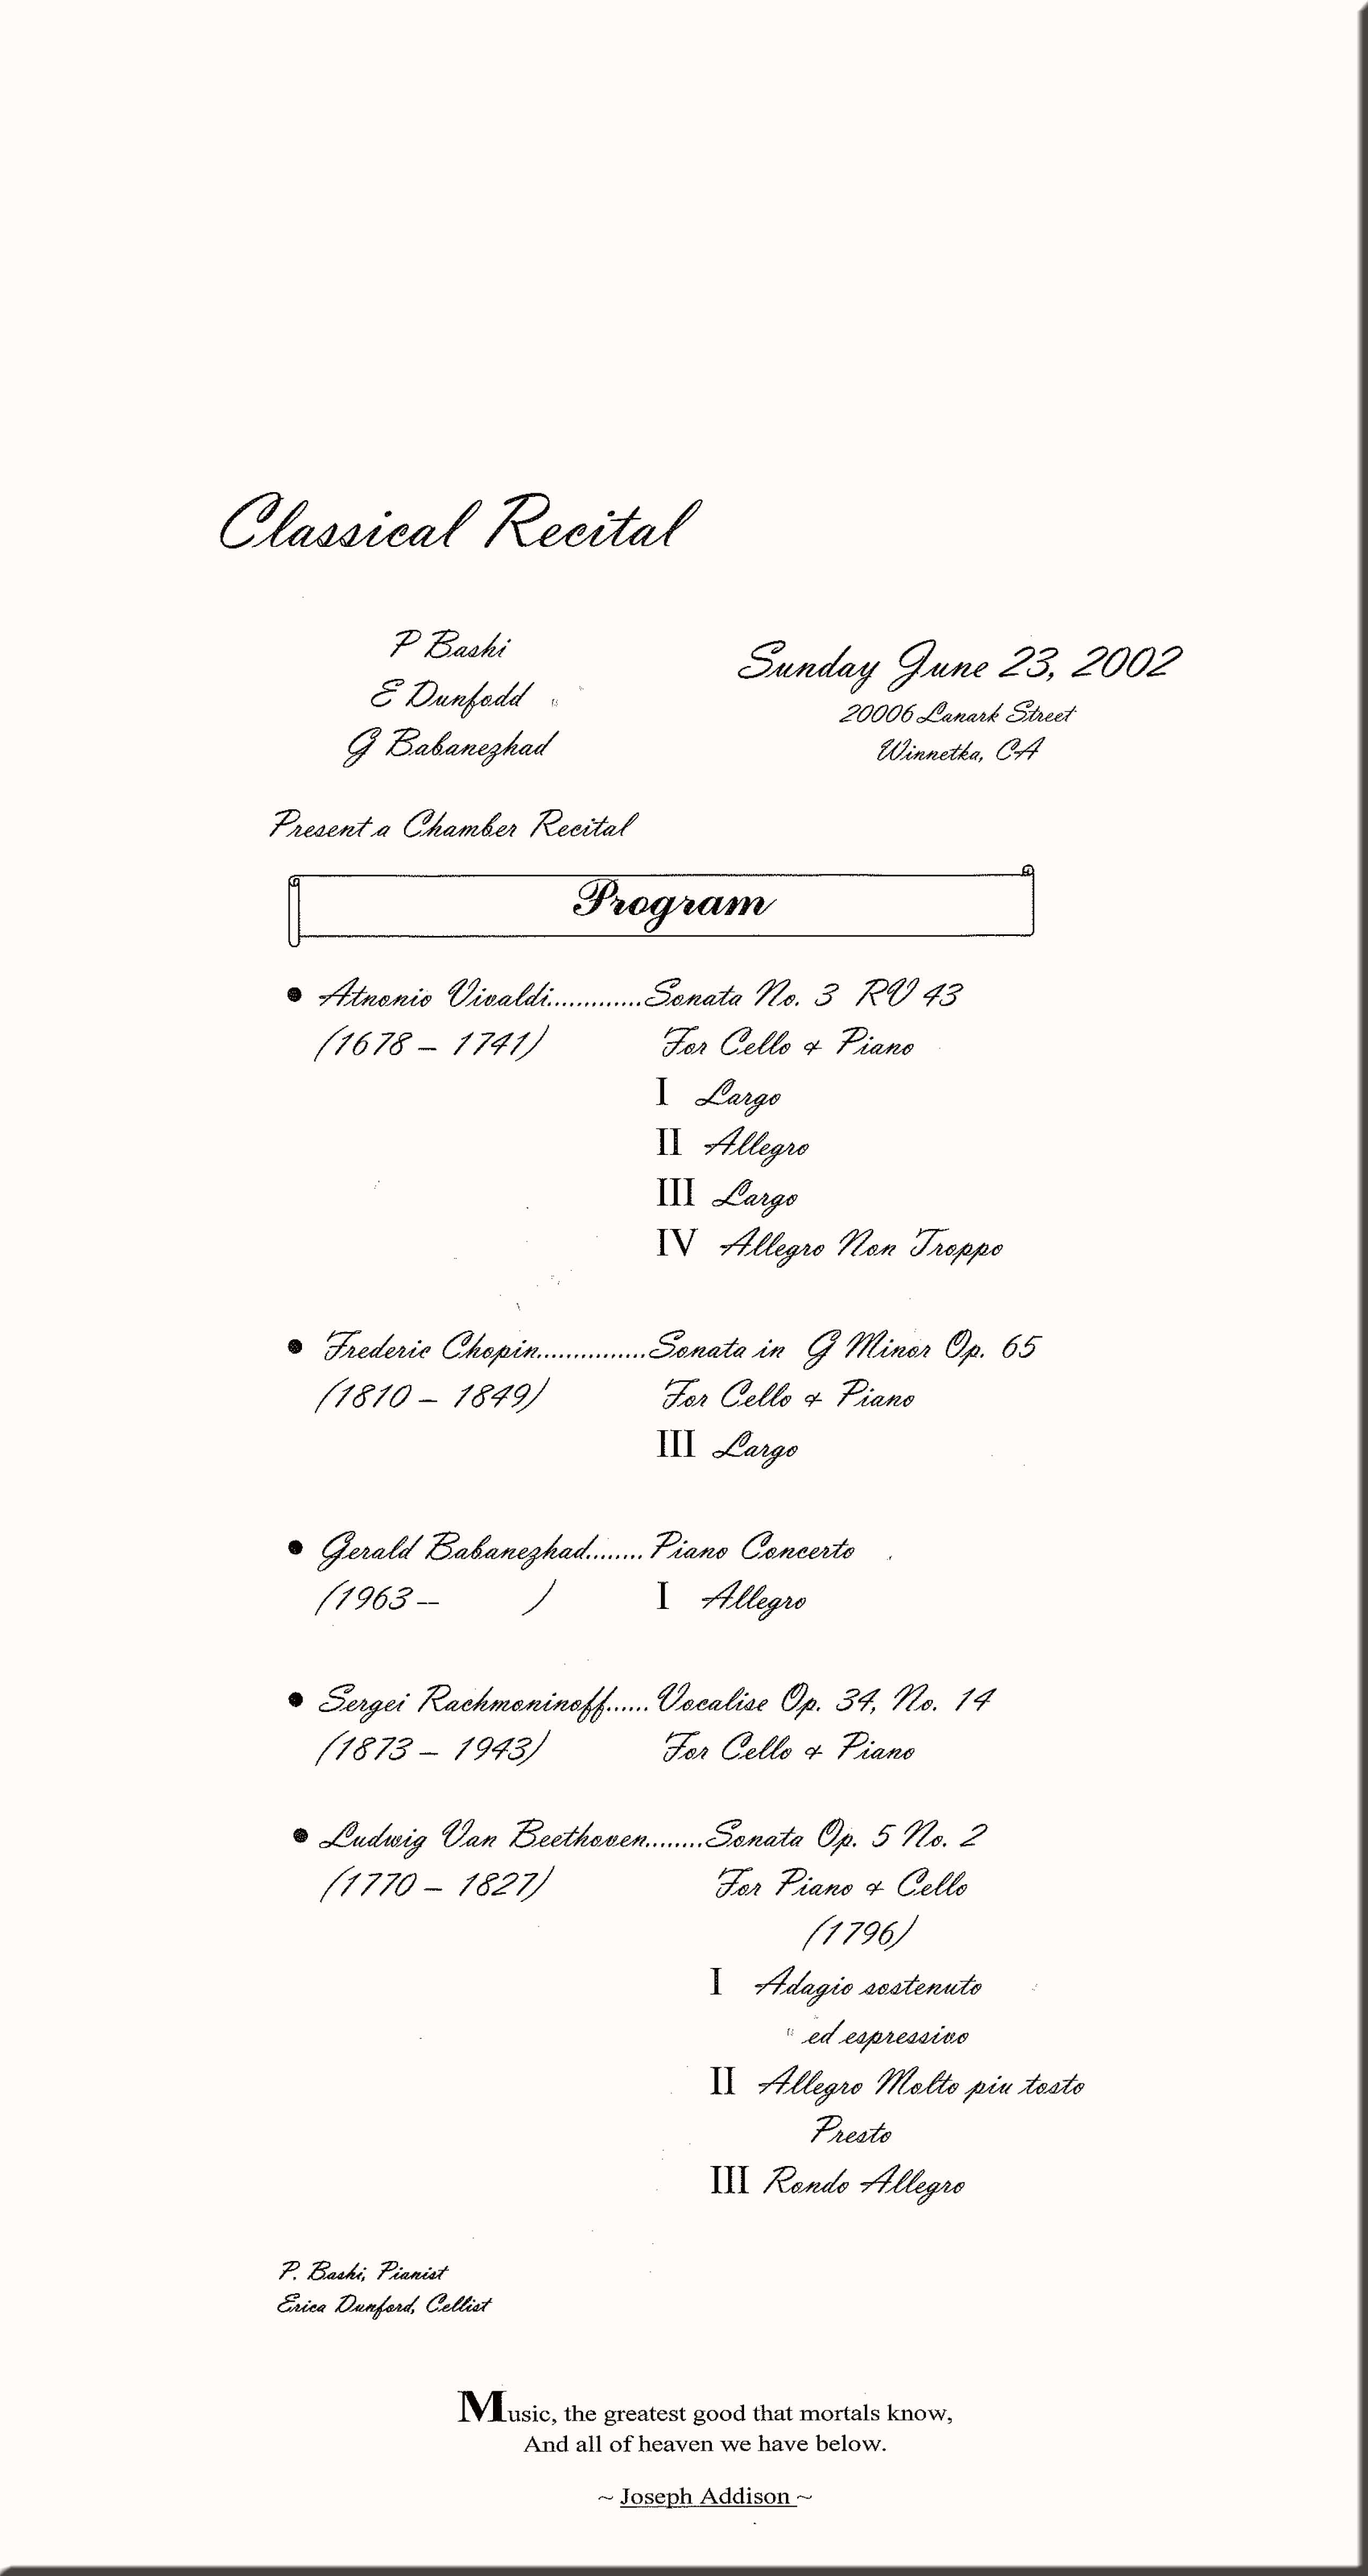 Classical Recital
P Bashi
E Dunfodd
G Babanezhad
Sunday June 23, 2002
20006 Lanark Street
Winnetka, CA
Present a Chamber Recital
Program
• Atnonio Vivaldi.............Sonata No. 3 RV 43
(1678 – 1741) For Cello & Piano
I Largo
II Allegro
III Largo
IV Allegro Non Troppo
• Frederic Chopin...............Sonata in G Minor Op. 65
(1810 – 1849) For Cello & Piano
III Largo
• Gerald Babanezhad........Piano Concerto
(1963 – ) I Allegro
• Sergei Rachmoninoff......Vocalise Op. 34, No. 14
(1873 – 1943) For Cello & Piano
• Ludwig Van Beethoven........Sonata Op. 5 No. 2
(1770 – 1827) For Piano & Cello
(1796)
I Adagio sostenuto
ed espressivo
II Allegro Molto piu tosto
Presto
III Rondo Allegro
P. Bashi, Pianist
Erica Dunford, Cellist
Music, the greatest good that mortals know,
And all of heaven we have below.
~ Joseph Addison ~